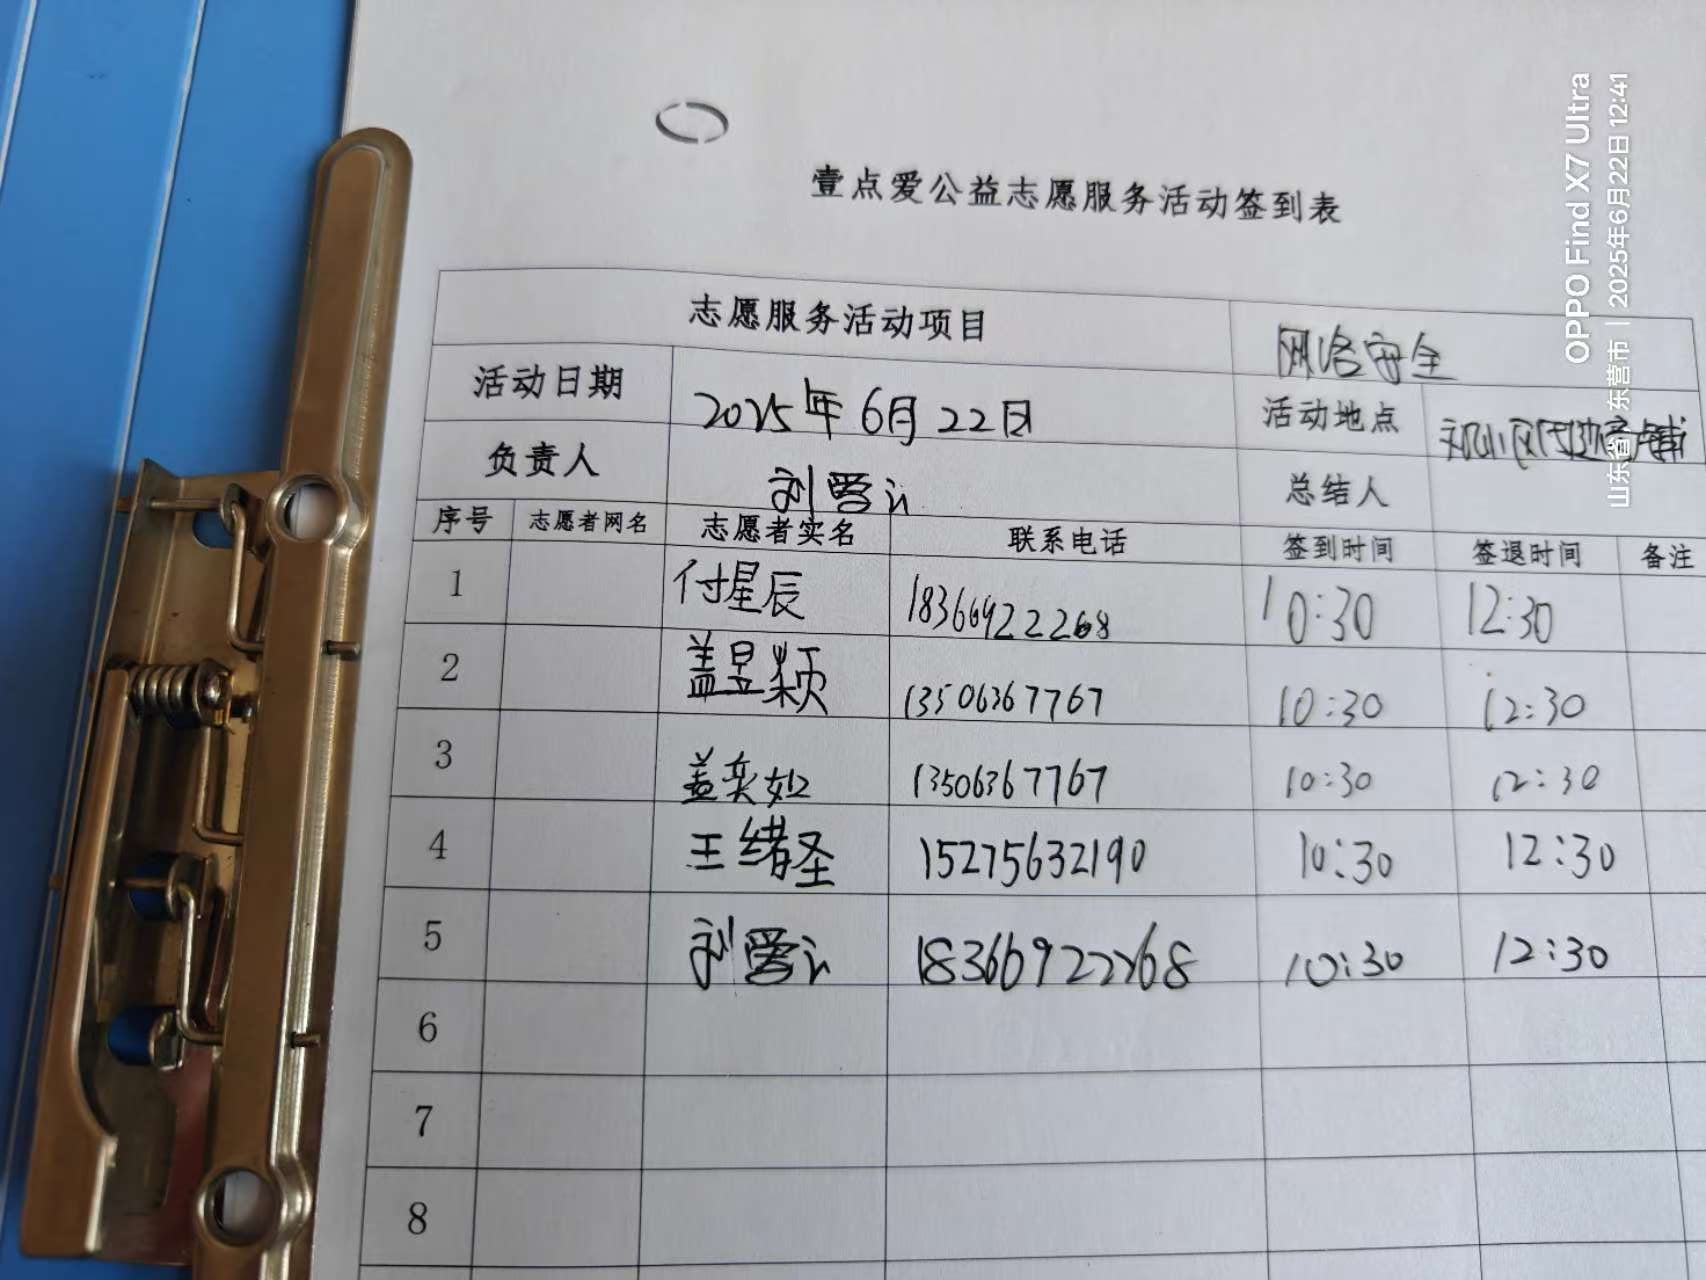 壹点爱公益志愿服务活动签到表
志愿服务活动项目 网络安全
活动日期 2025年6月22日 活动地点
负责人 刘爱 总结人
序号 志愿者网名 志愿者实名 联系电话 签到时间 签退时间 备注
1 付星辰 18366922268 10:30 12:30
2 盖昱颖 13506367767 10:30 12:30
3 盖奕如 13506367767 10:30 12:30
4 王绪圣 15275632190 10:30 12:30
5 刘爱 18366922268 10:30 12:30
6
7
8
OPPO Find X7 Ultra
山东省 东营市 | 2025年6月22日 12:41